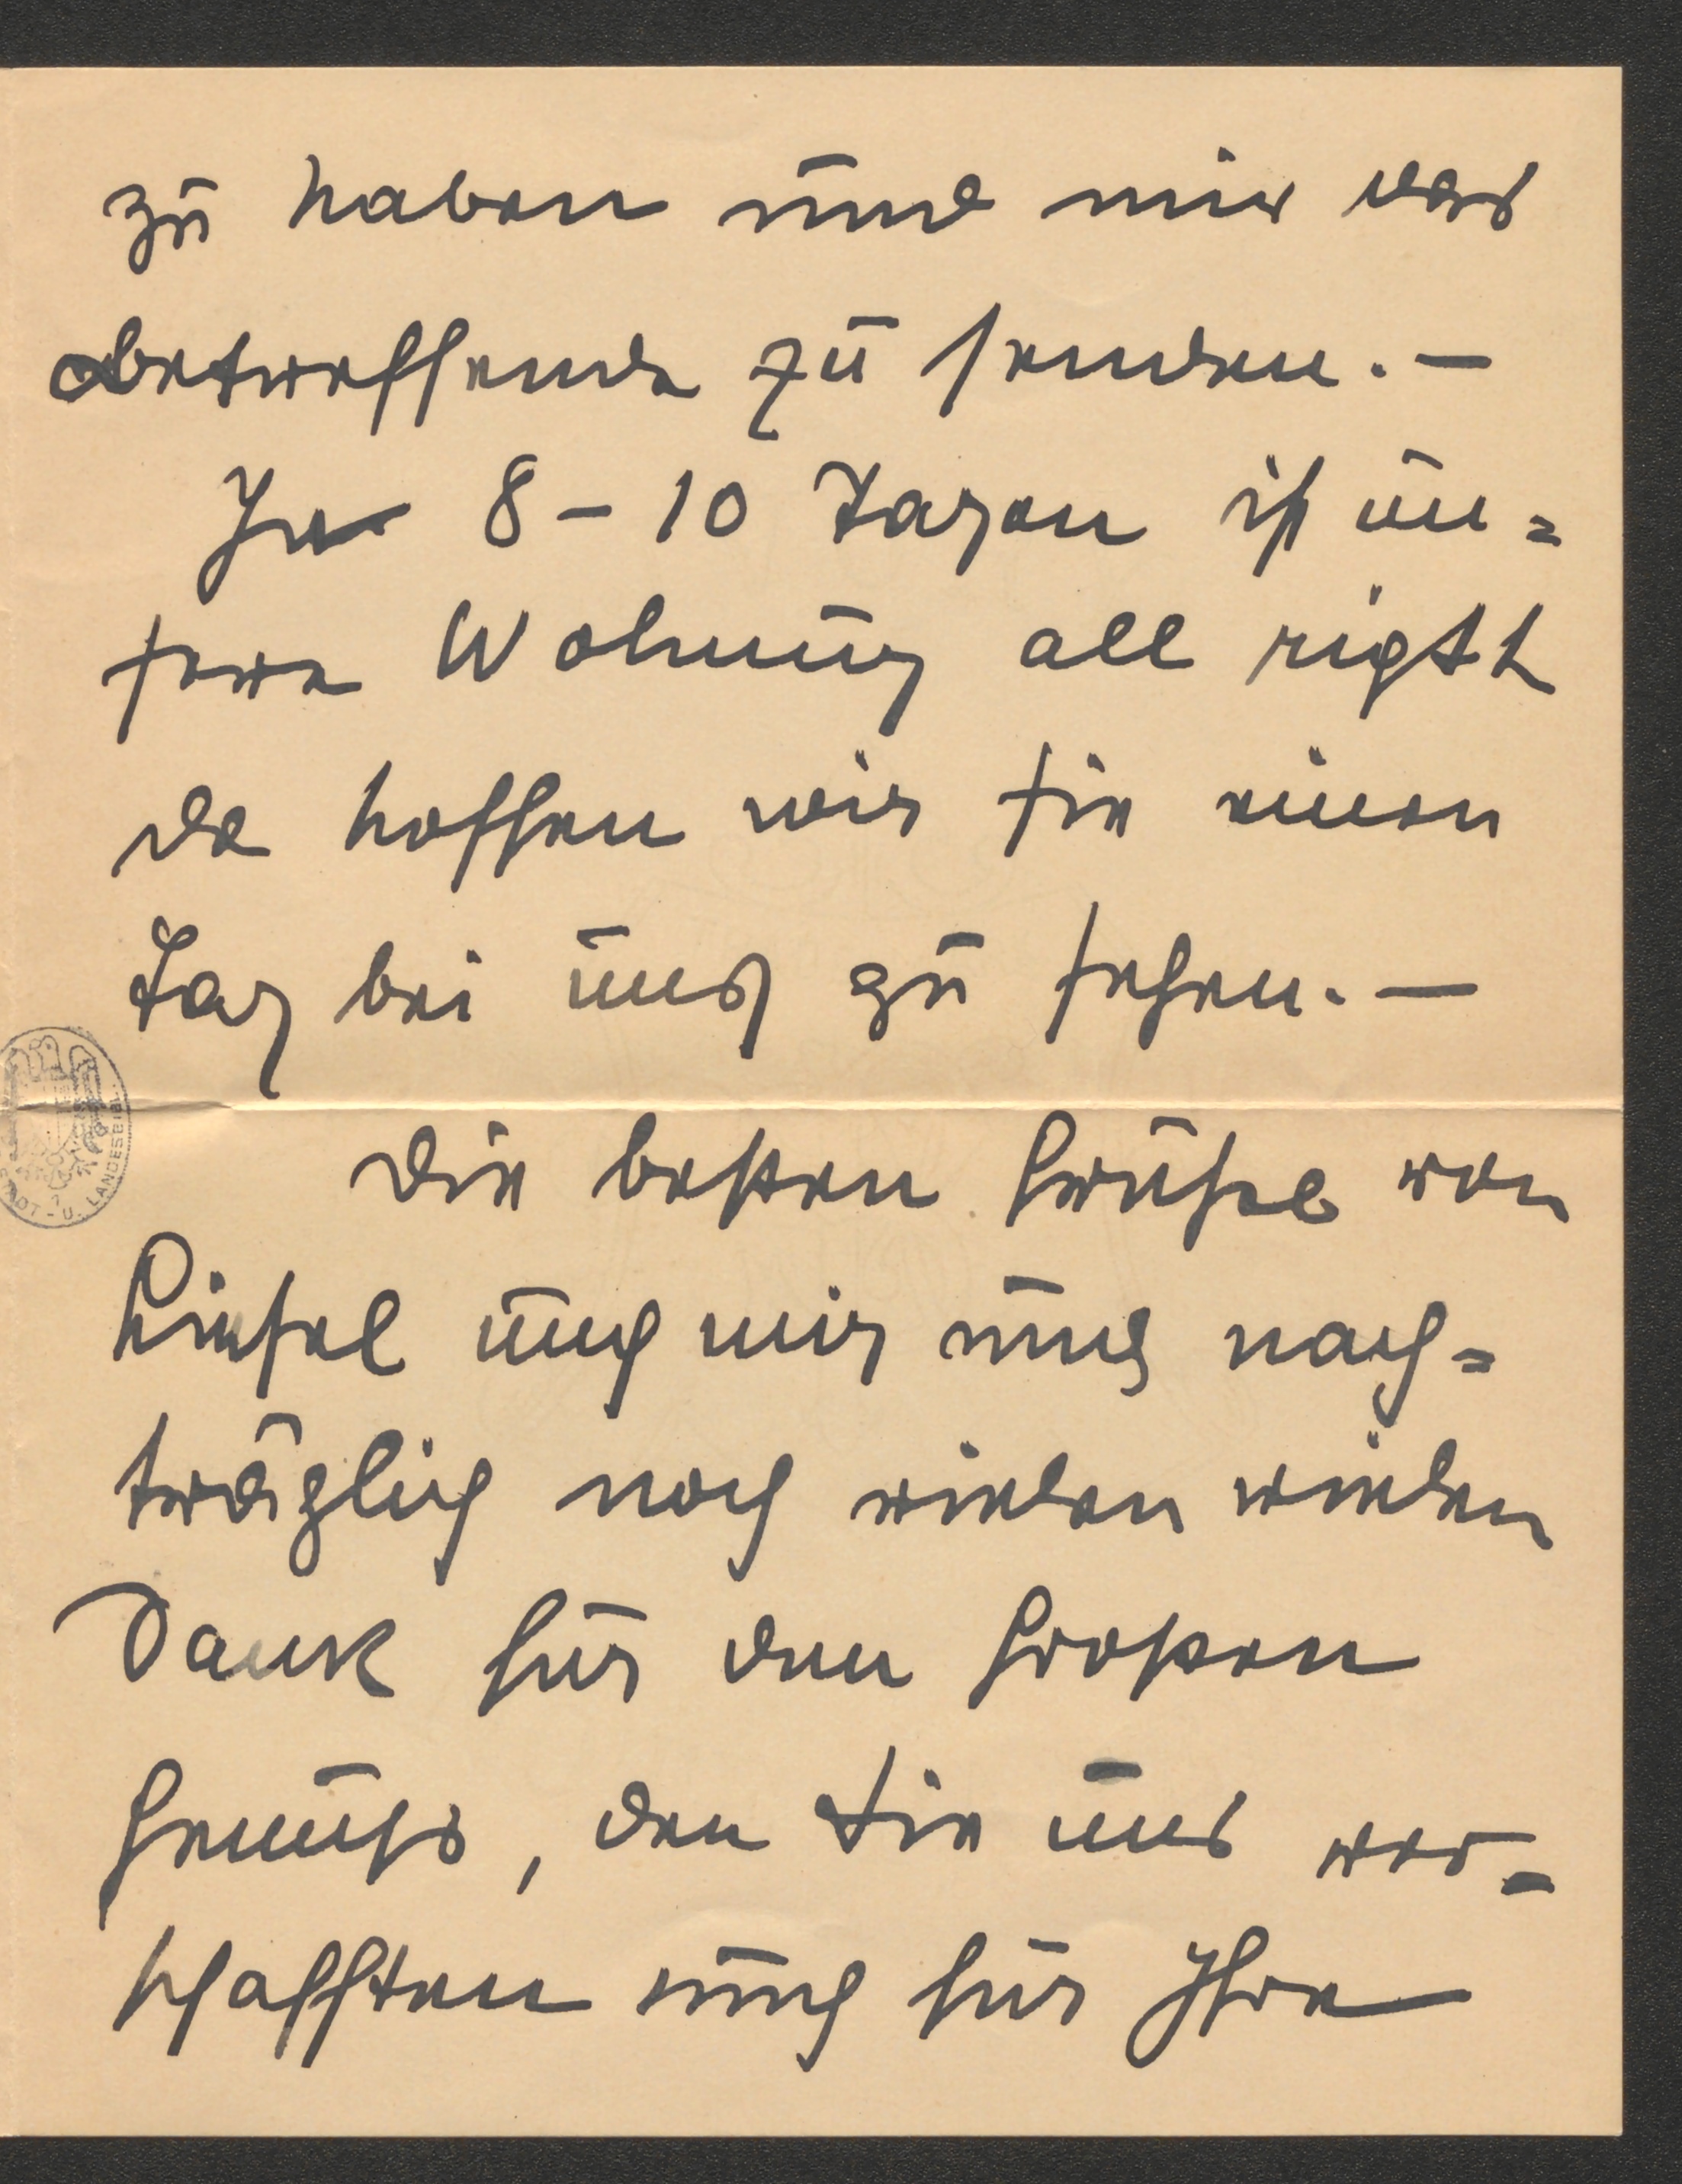 zu haben und mir das
betreffende zu senden. —
In 8 – 10 Tagen ist un=
sere Wohnung all rigth
da hoffen wir Sie einen
Tag bei uns zu sehen. —
Die besten Grüße von
und mir und nach=
träglich noch vielen vielen
Dank für den großen
Genuß, den Sie uns ver=
schafften und für Ihre
ADT - U. LANDESBIBL